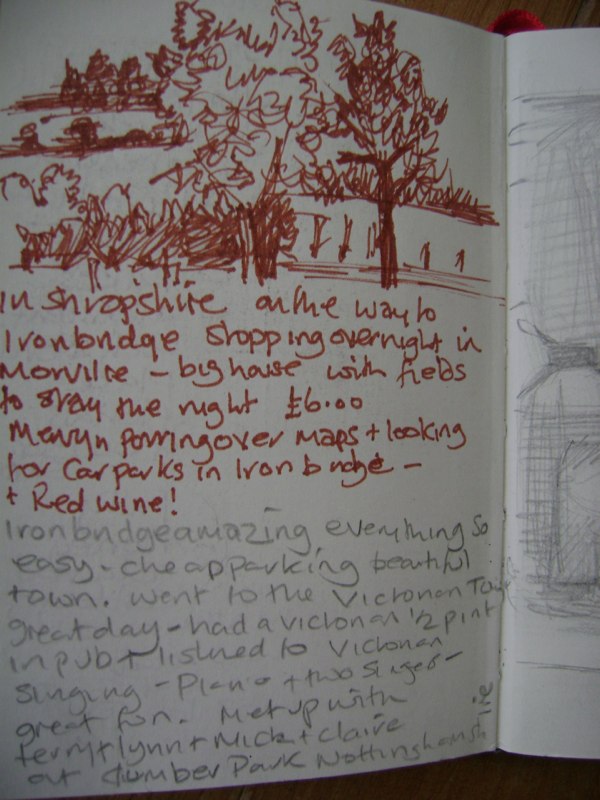 in Shropshire on the way to
Ironbridge Stopping overnight in
Morville – big house with fields
to stay the night £6.00
Mervyn pouring over maps + looking
for Car parks in Iron bridge –
+ Red wine!
Ironbridge amazing everything so
easy - cheap parking beautiful
town. went to the Victorian Town
great day - had a victorian ½ pint
in pub + listned to Victorian
singing - Piano + two singers -
great fun. Met up with
terry + lynn + Mick + Claire
at Clumber Park Nottinghamshire